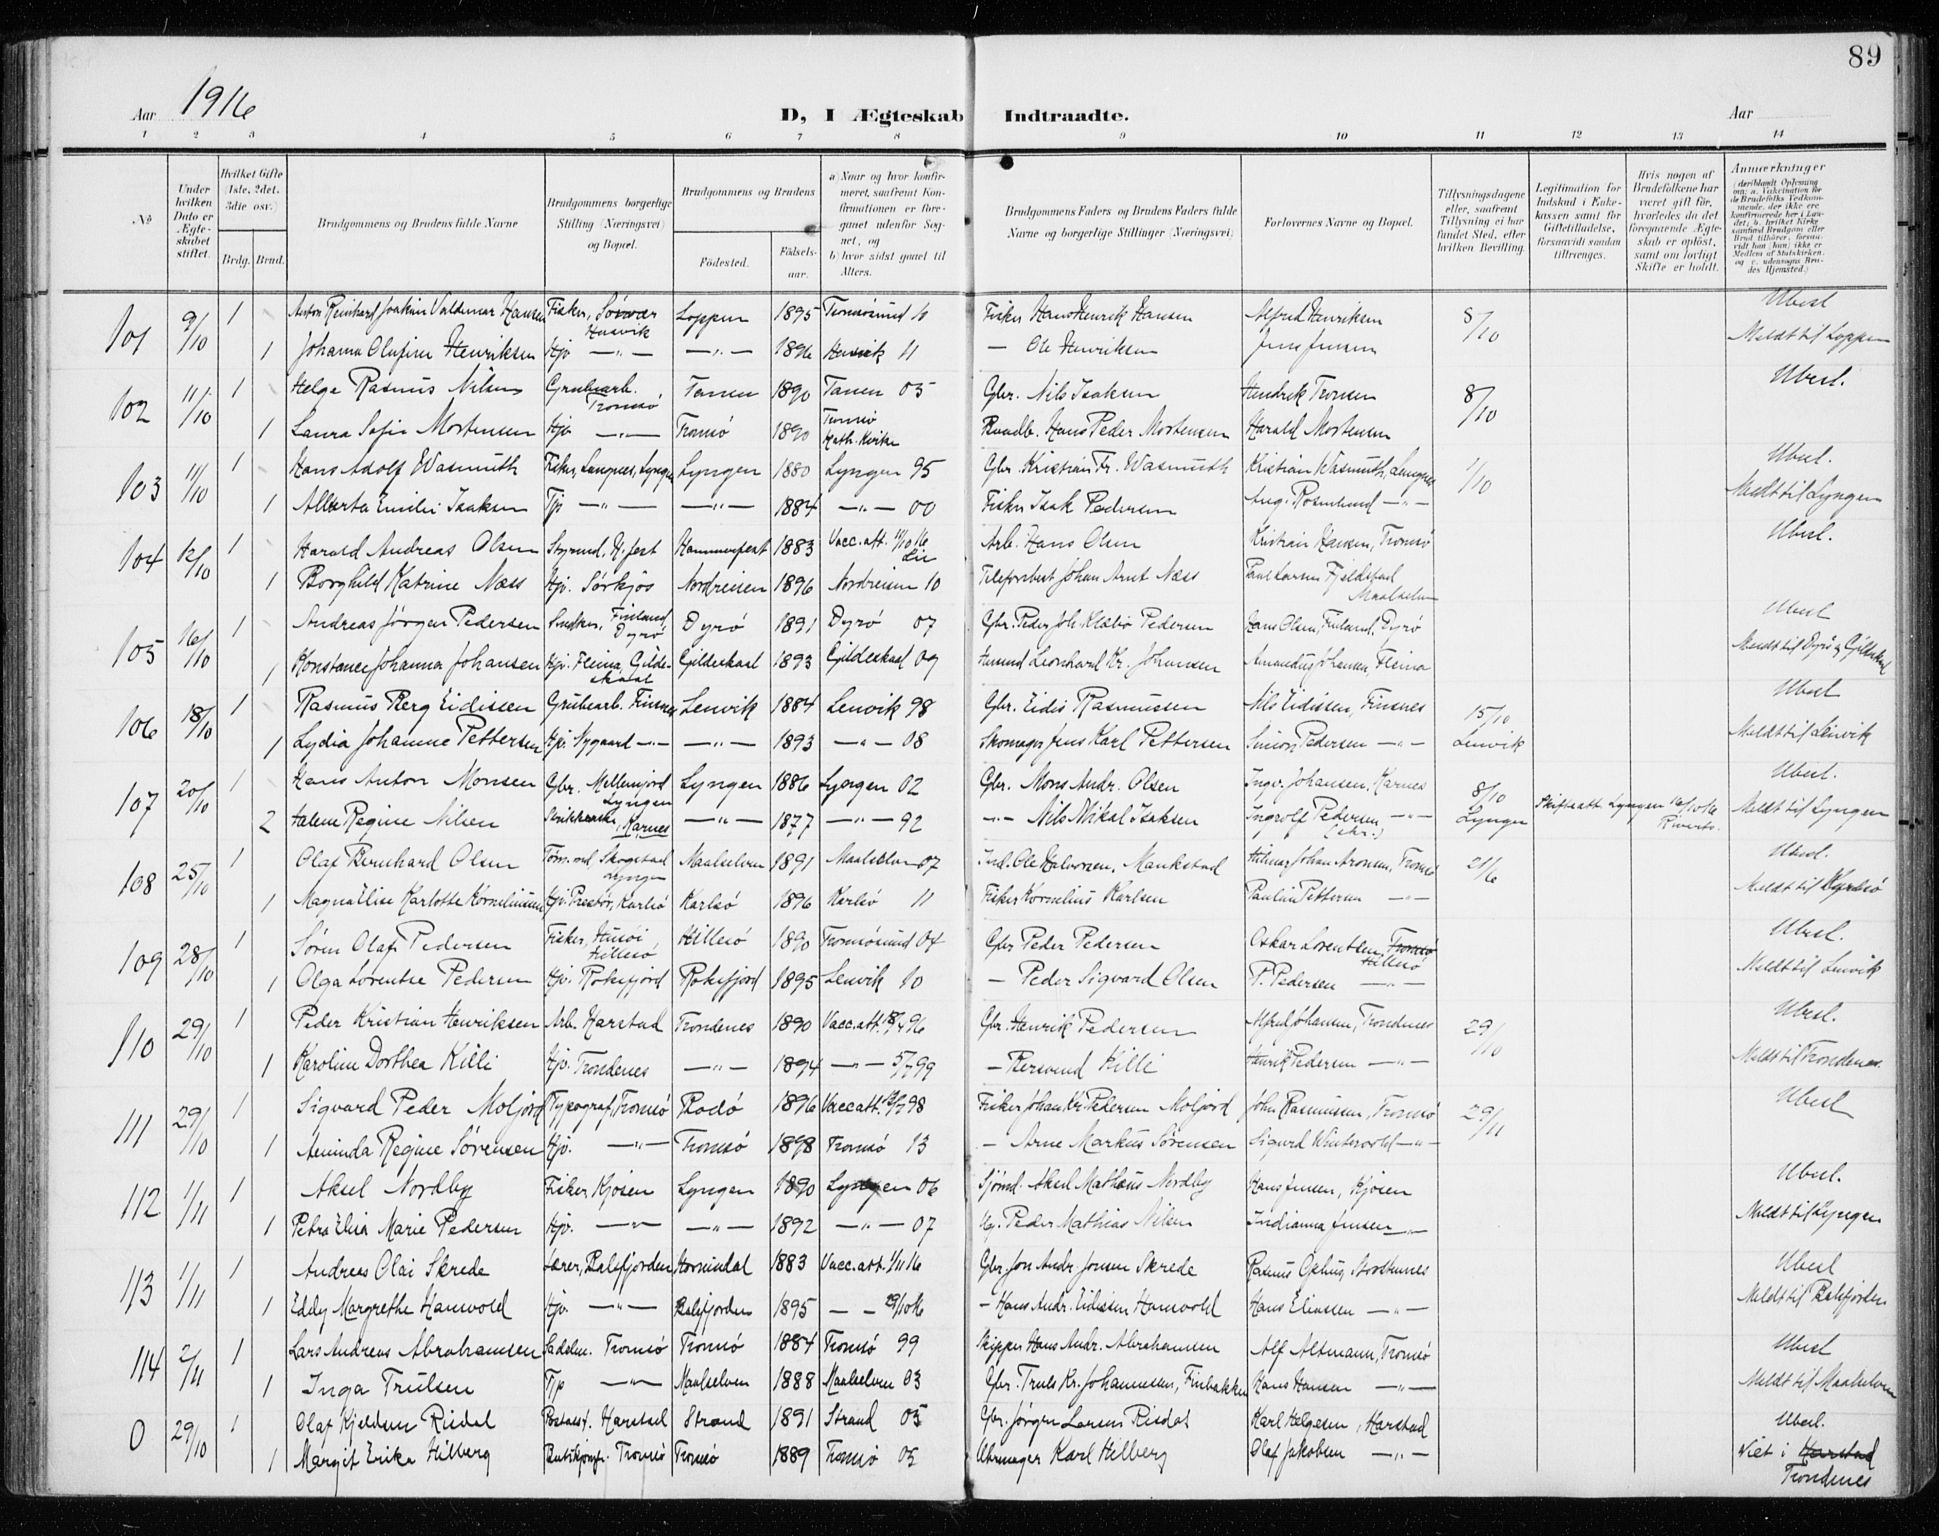 89
Aar 1916
D, I Ægteskab Indtraadte.
Aar
1 2 3 4 5 6 7 8 9 10 11 12 13 14
No
Under hvilken Dato er Ægteskabet stiftet.
Hvilket Gifte (1ste, 2det, 3die osv.)
Brdg. Brud.
Brudgommens og Brudens fulde Navne
Brudgommens borgerlige Stilling (Næringsvei) og Bopæl.
Brudgommens og Brudens
Födested.
Födselsaar.
a) Naar og hvor konfirmeret, saafremt Konfirmationen er foregaaet udenfor Sognet, og b) hvor sidst gaaet til Alters.
Brudgommens Faders og Brudens Faders fulde Navne og borgerlige Stillinger (Næringsvei)
Forlovernes Navne og Bopæl.
Tillysningsdagene eller, saafremt Tillysning ei har fundet Sted, efter hvilken Bevilling.
Legitimation for Indskud i Enkekassen samt for Giftetilladelse, forsaavidt saadan tiltrænges.
Hvis nogen af Brudefolkene har været gift för, hvorledes da det foregaaende Ægteskab er oplöst, samt om lovligt Skifte er holdt.
Anmærkninger
101 9/10 1 Anton Reinhard Joakim Valdemar Hansen Fisker, Sørvær Loppen 1895 Tromsøsund 10 Fisker Hans Henrik Hansen Alfred Henriksen 8/10 Ubesl
Hasvik
1 Johanna Olufine Henriksen Hjv. —"— —"— 1896 Hasvik 11 — Ole Henriksen Jens Jensen Meldt til Loppen
102 11/10 1 Helge Rasmus Nilsen Grubearb. Tromsø Tanen 1890 Tanen 05 Gbr. Nils Isaksen Hendrik Tronsen 8/10 Ubesl.
1 Laura Sofie Mortensen Hjv —"— Tromsø 1890 Tromsø Kath. Kirke Hans Peder Mortensen Harald Mortensen
103 11/10 1 Hans Adolf Wasmuth Fisker, Lyngen Lyngen 1880 Lyngen 95 Gbr. Kristian Fr. Wasmuth Kristian Wasmuth, 1/10 Ubesl.
1 Alberta Emilie Isaksen Tjp —"— —"— 1884 —"— 00 Fisker Isak Pedersen Aug. Rosenlund —"— Meldt til Lyngen
104 12/10 1 Harald Andreas Olsen Styrmd, H.fest Hammerfest 1883 Vacc.att. 11/10 16 Arb. Hans Olsen Kristian Hansen, Tromsø Ubesl.
1 Borghild Katrine Næss Hjv. Sørkjos Nordreisen 1896 Nordreisen 10 Telefonbest Johan Arnt Næss Paul Larsen Fjeldstad Maalselven
105 16/10 1 Andreas Jörgen Pedersen Snedker, Finland Dyrö Dyrö 1891 Dyrö 07 Gbr. Peder Joh. Klæbo Pedersen Hans Olsen, Finland, Dyrö Ubesl
1 Konstance Johanna Johansen Hjv. Fleina, Gildeskaal Gildeskaal 1893 Gildeskaal 09 Leonhard Kr. Johansen Amandus Johansen, Fleina Meldt til Dyrö & Gildeskaal
106 18/10 1 Rasmus Berg Eidissen Grubearb. Finsnes Lenvik 1884 Lenvik 98 Gbr. Eidis Rasmussen Nils Eidissen, Finsnes 15/10 Ubesl
1 Lydia Johanne Pettersen Hjv. Nygaard —"— —"— 1893 —"— 08 Skomager Jens Karl Pettersen Simon Pedersen —"— Lenvik Meldt til Lenvik
107 20/10 1 Hans Anton Monsen Gbr. Mellemjord Lyngen Lyngen 1886 Lyngen 02 Gbr. Mons Andr. Olsen Ingv. Johansen, Karnes 8/10 Ubesl.
2 Halene Regine Nilsen Karnes —"— 1877 —"— 92 —"— Nils Nikal Isaksen Ingrolf Pedersen Lyngen Skifteatt. Lyngen 16/10 16 Meldt til Lyngen
108 25/10 1 Olaf Bernhard Olsen Tømmd Skogstad Lyngen Maalselven 1891 Maalselven 07 Ind. Ole Halvorsen, Maukstad Hilmar Johan Aronsen, Tromsø 21/6 Ubesl.
1 Magna Elise Karlotte Korneliussen Hjv. Prestø, Karlsö Karlsö 1896 Karlsö 11 Fisker Kornelius Karlsen Paulin Pettersen —"— Meldt til Karlsö
109 28/10 1 Sören Olaf Pedersen Fisker, Husöi Hillesö Hillesö 1890 Tromsøsund 04 Gbr Peder Pedersen Oskar Lorentsen, Tromsø Hillesö Ubesl.
1 Olga Lorentse Pedersen Hjv. Roksfjord Roksfjord 1895 Lenvik 10 — Peder Sigvard Olsen P. Pedersen —"— Meldt til Lenvik
110 29/10 1 Peder Kristian Henriksen Arb. Harstad Trondenes 1890 Vacc.att. 96 Gbr. Henrik Pedersen Alfred Johansen, Trondenes 29/10 Ubesl.
1 Karoline Dorthea Killi Hjv. Trondenes —"— 1894 —"— 5/7 99 — Bersvend Killi Henrik Pedersen —"— Meldt til Trondenes.
111 29/10 1 Sigvard Peder Moljord Typograf, Tromsø Bodö 1896 Vacc att. 98 Fisker Johan Kr. Pedersen Moljord John Rasmussen, Tromsø 29/11 Ubesl
1 Aminda Regine Sörensen Hjv. —"— Tromsø 1898 Tromsø 13 — Arne Markus Sørensen Sigurd Wintervold —"—
112 1/11 1 Aksel Nordby Fisker, Kjosen Lyngen 1890 Lyngen 06 Sjömd. Aksel Mathæus Nordby Hans Jensen, Kjosen Ubesl.
1 Petra Elisa Marie Pedersen Hjv. —"— —"— 1892 —"— 07 Peder Mathias Nilsen Indianna Jensen —"— Meldt til Lyngen
113 1/11 1 Andreas Olai Skrede Lærer, Balsfjorden Hornindal 1883 Vacc.att. 1/11 16 Gbr. Jon Andr. Jonsen Skrede Rasmus Ophus, Storstennes Ubesl
1 Eddy Margrethe Hamvold Hjv. —"— Balsfjorden 1895 — — 29/10 16 — Hans Andr. Eidissen Hamvold Hans Eliassen —"— Meldt til Balsfjorden
114 2/11 1 Lars Andreas Abrahamsen Sadelm. Tromsø Tromsø 1884 Tromsø 99 Skipper Hans Andr. Abrahamsen Alf Altmann, Tromsø Ubesl
1 Inga Trulsen Tjp —"— Maalselven 1888 Maalselven 03 Gbr. Truls Kr. Johannesen, Finbakken Hans Hansen —"— Meldt til Maalselven
0 29/10 1 Olaf Kjeldsen Risdal Postass. Harstad Strand 1891 Strand 05 Gbr. Jörgen Larsen Risdal Karl Helgesen, Harstad Ubesl.
1 Margit Erika Hilberg Butikjomfr. Tromsø Tromsø 1889 Tromsø 05 Uhrmager Karl Hilberg Olaf Jakobsen —"— Viet i Harstad
Trondenes